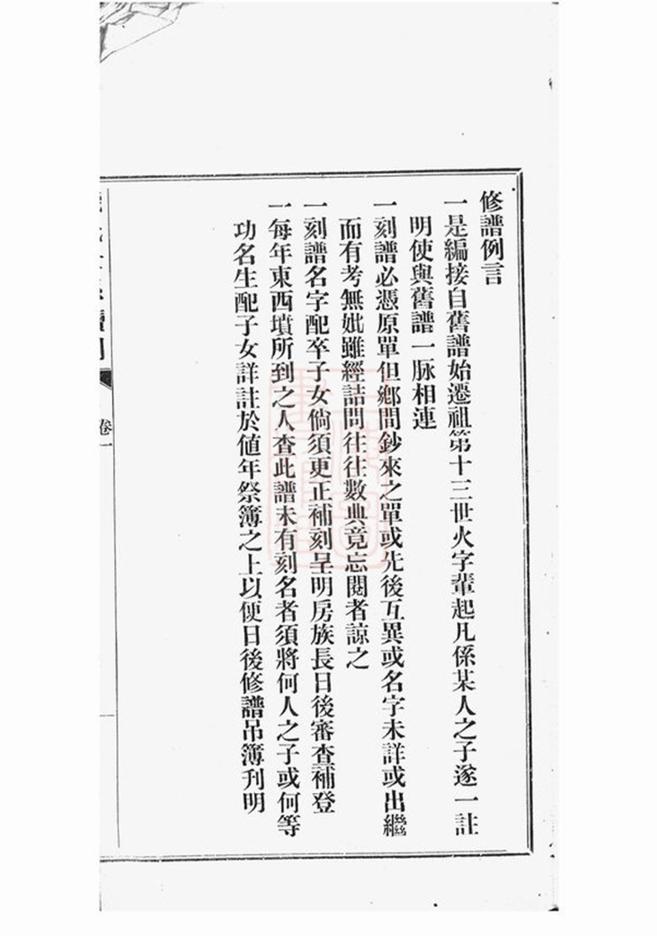 修譜例言
一是編接自舊譜始遷祖第十三世火字輩起凡係某人之子遂一註
明使與舊譜一脉相連
一刻譜必憑原單但鄉間鈔來之單或先後互異或名字未詳或出繼
而有考無妣雖經詰問往往數典竟忘閱者諒之
一刻譜名字配卒子女倘須更正補刻呈明房族長日後審查補登
一每年東西墳所到之人查此譜未有刻名者須將何人之子或何等
功名生配子女詳註於値年祭簿之上以便日後修譜吊簿刋明
卷一